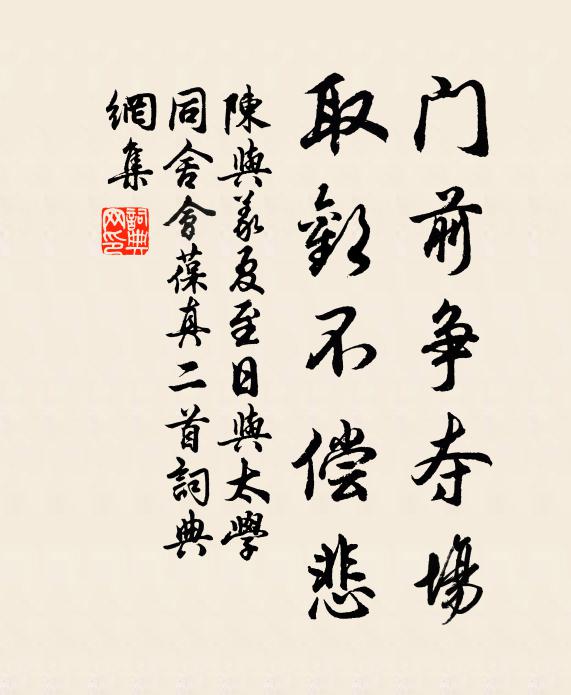 门前争夺場
取歡不偿悲
陳與義夏至日與太學
同舍會葆真二首詞典
網集
詞典网印